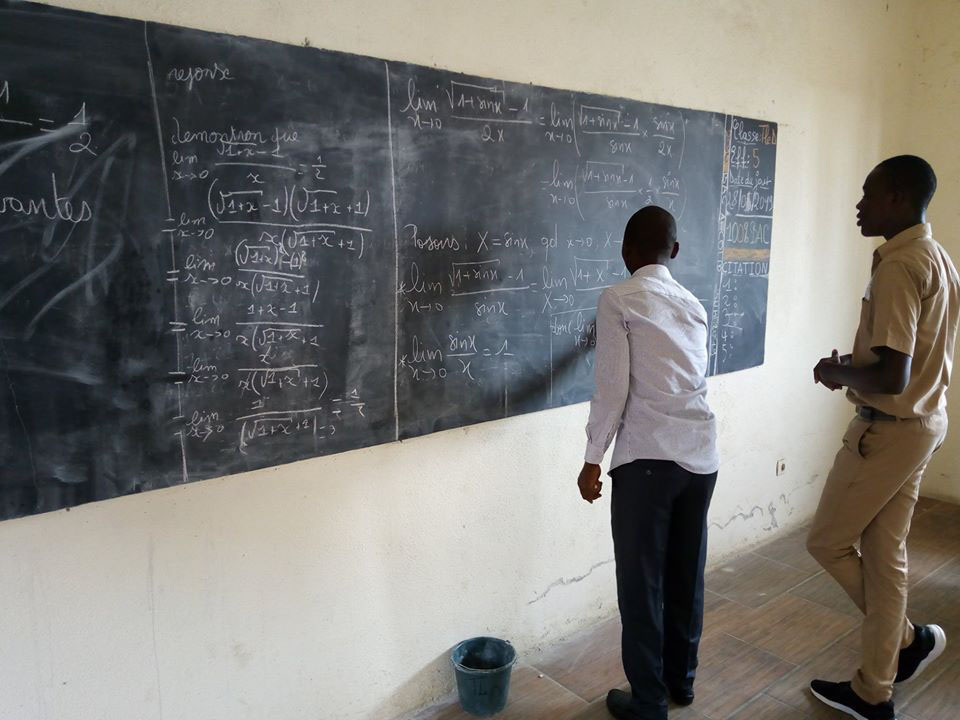 1/2 = 1/2
vantes
reponse
demontron que
lim x→0 (√(1+x) - 1)/x = 1/2
= lim x→0 ((√1+x - 1)(√1+x + 1))/(x(√1+x + 1))
= lim x→0 ((√1+x)² - (1)²)/(x(√1+x + 1))
= lim x→0 (1+x-1)/(x(√1+x + 1
= lim x→0 x/(x(√1+x + 1)
= lim x→0 1/(√1+x + 1) = 1/2
lim x→0 (√(1+sinx) - 1)/2x = lim x→0 ((√(1+sinx) - 1)/sinx × sinx/2x)
= lim x→0 ((√(1+sinx) - 1)/sinx × 1/2 × sinx/x)
Posons : X = sinx qd x→0, X→
* lim x→0 (√(1+sinx) - 1)/sinx = lim X→0 √(1+X) - 1
donc lim x→0
* lim x→0 sinx/x = 1
Classe: Tle D
Eff: 5
Date du jour
100% BAC
CITATION
1:
2:
4:
5: